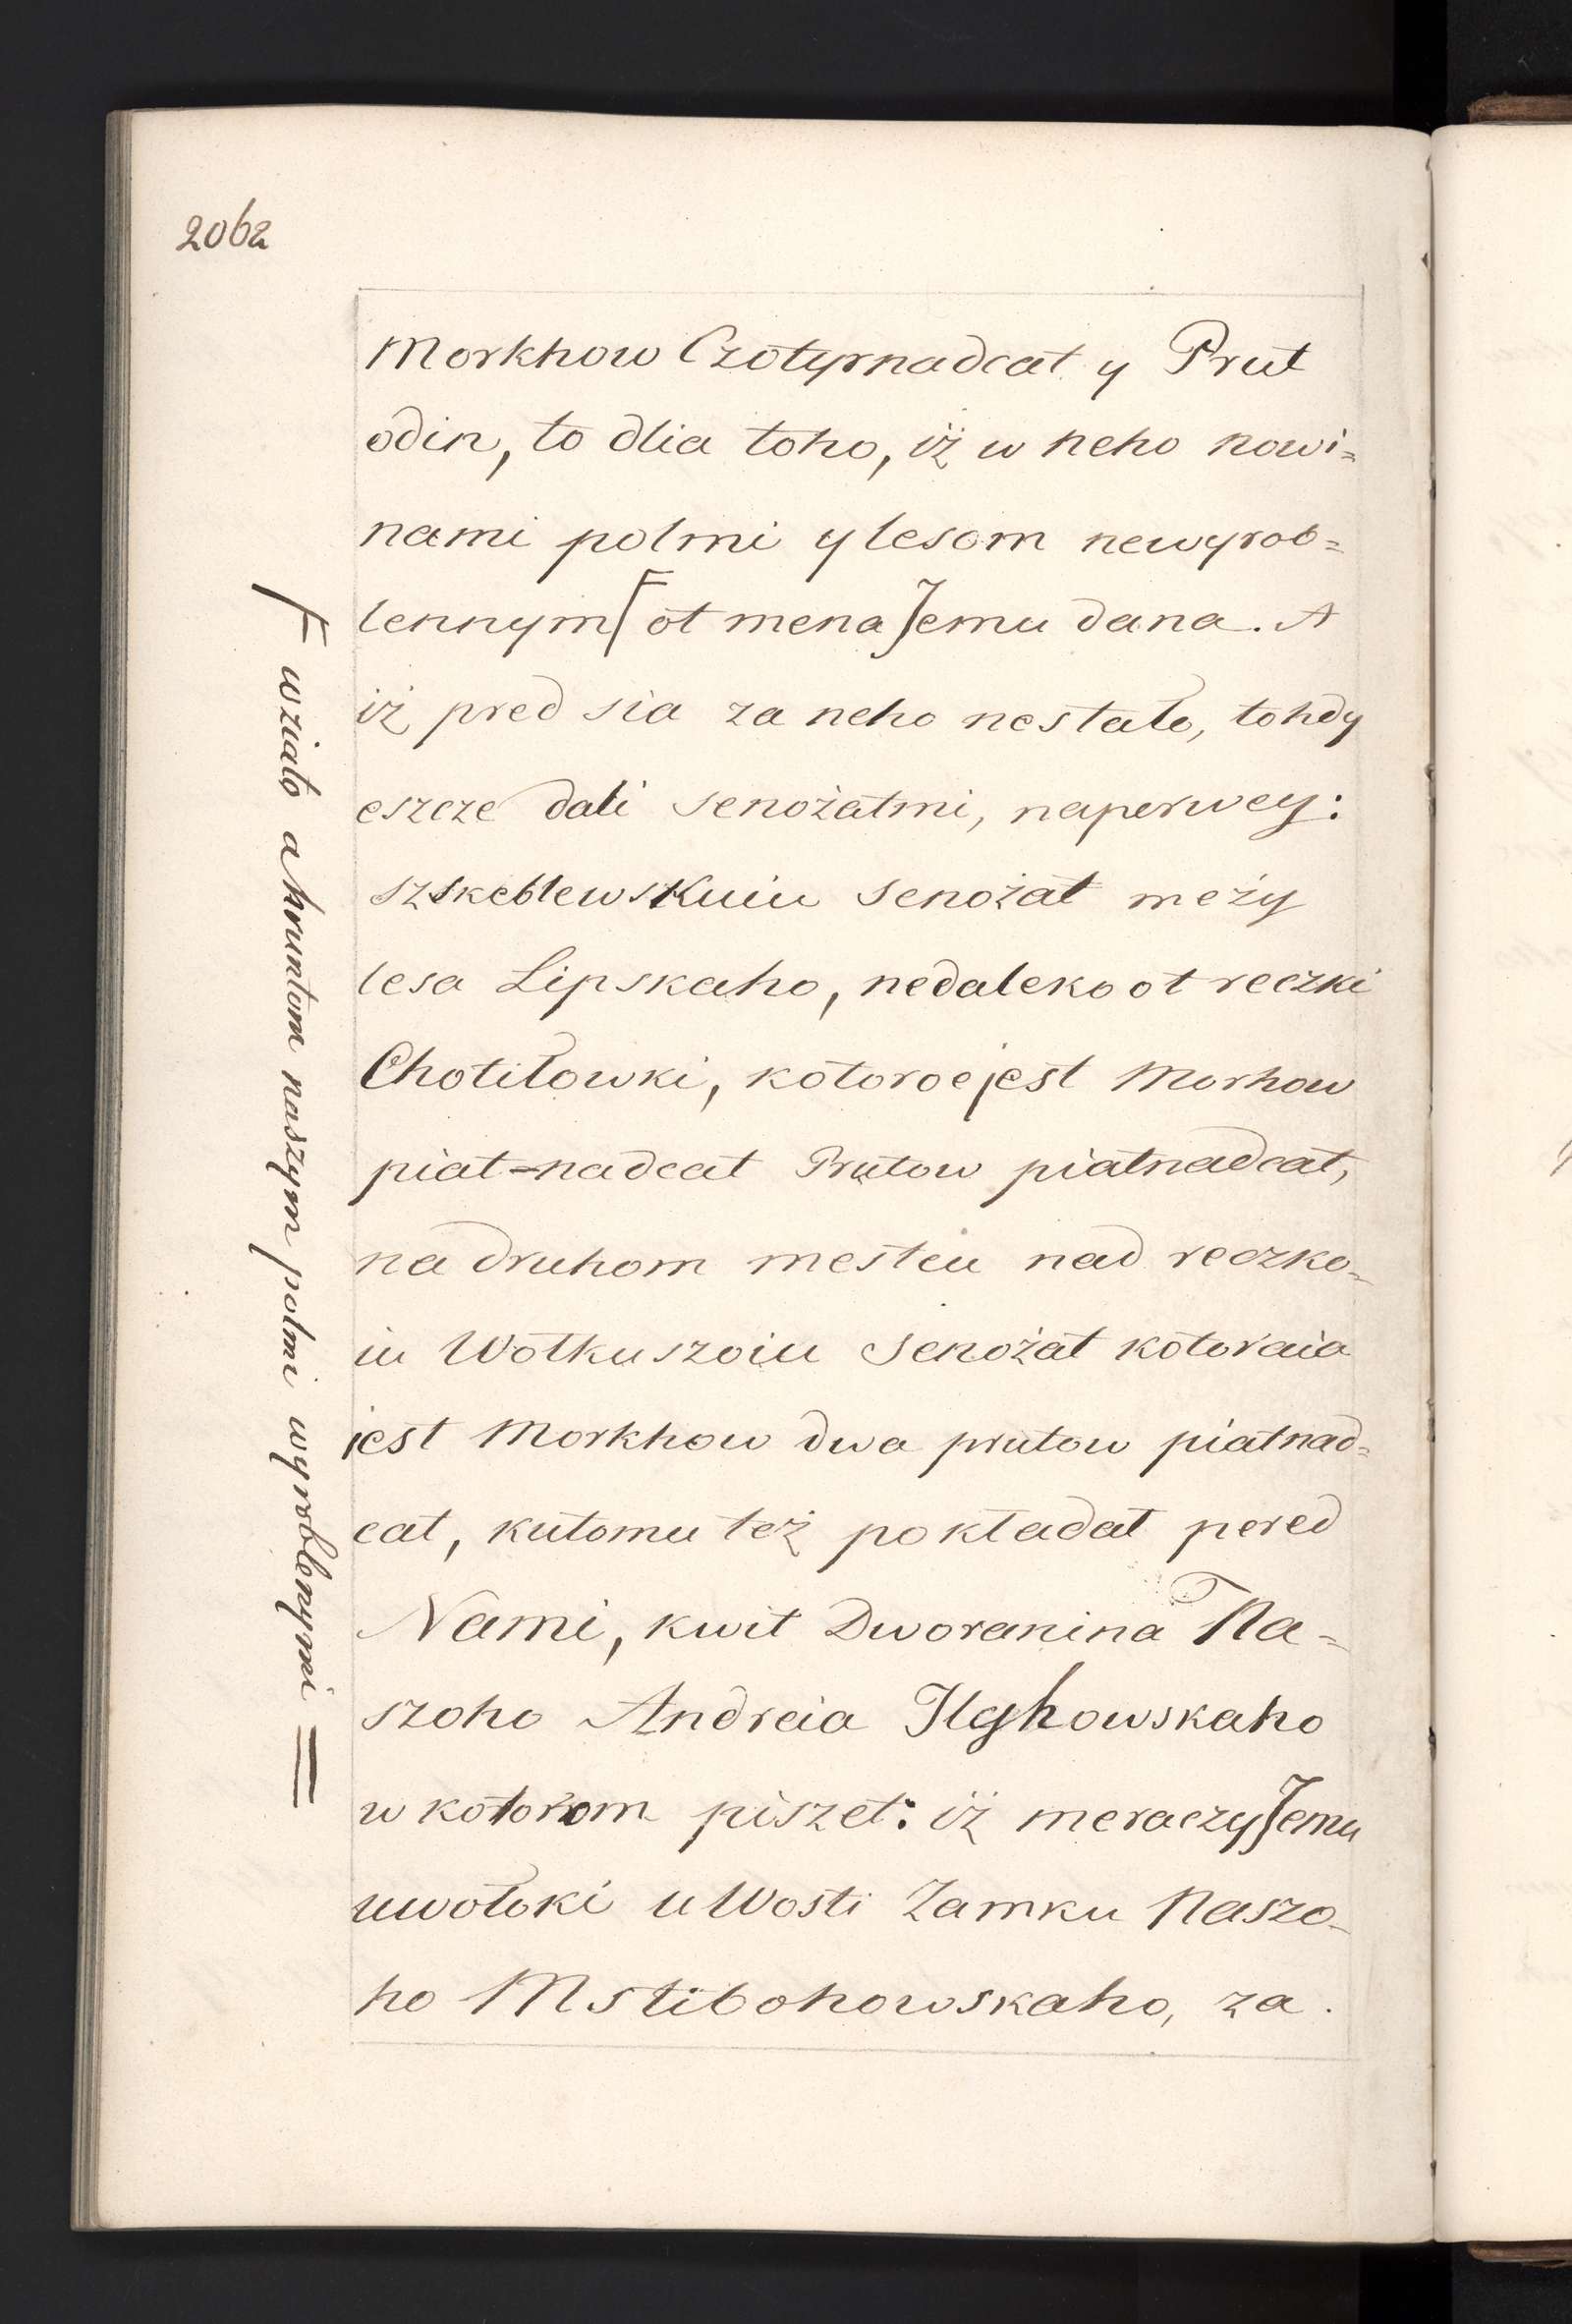 2062
Morkhow Czotyrnadcat y Prut
odin, to dlia toho, iż w neho nowi=
nami polmi y lesom newyrob=
lennym⌈ ot mena Jemu dana. A
iż pred sia za neho nestało, tohdy
eszcze dali senożatmi, naperwey:
szskeblewskuiu senożat meży
lesa Lipskaho, nedaleko ot reczki
Chotiłowki, kotoroe jest Morhow
piat-nadcat Prutow piatnadcat,
na druhom mestcu nad reczko-
iu Wołkuszoiu senożat kotoraia
jest Morkhow dwa prutow piatnad=
cat, kutomu też pokładał pered
Nami, kwit Dworanina Na-
szoho Andreia Ilghowskaho
w kotorom piszet: iż meraczy Jemu
uwołoki u Wosti Zamku Naszo-
ho Mstibohowskaho, za
F wziało a hruntom naszym polmi wyroblenymi =